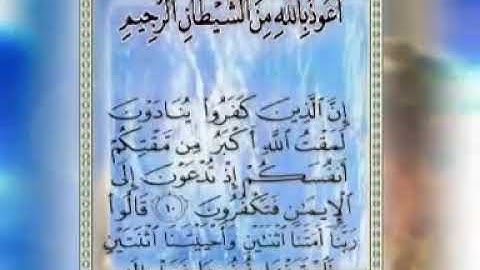 أَعُوذُ بِاللَّهِ مِنَ الشَّيْطَانِ الرَّجِيمِ
إِنَّ الَّذِينَ كَفَرُوا يُنَادَوْنَ
لَمَقْتُ اللَّهِ أَكْبَرُ مِن مَّقْتِكُمْ
أَنفُسَكُمْ إِذْ تُدْعَوْنَ إِلَى
الْإِيمَٰنِ فَتَكْفُرُونَ ١٠ قَالُوا
رَبَّنَا أَمَتَّنَا اثْنَتَيْنِ وَأَحْيَيْتَنَا اثْنَتَيْنِ